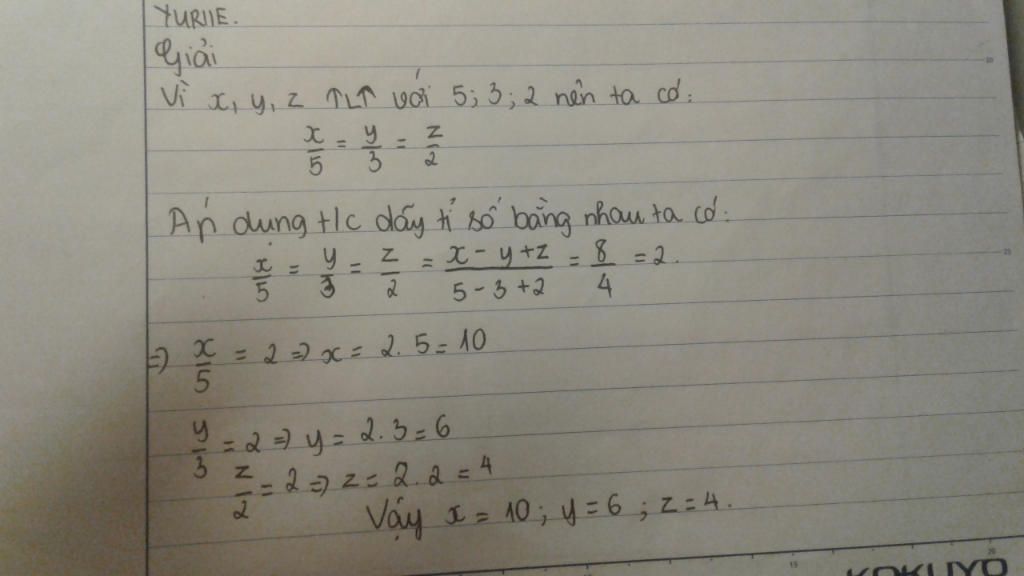 YURIIE.
Giải
Vì x, y, z ↑L↑ với 5; 3; 2 nên ta có:
x/5 = y/3 = z/2
Áp dụng t/c dãy tỉ số bằng nhau ta có:
x/5 = y/3 = z/2 = (x - y + z)/(5 - 3 + 2) = 8/4 = 2.
=> x/5 = 2 => x = 2. 5 = 10
y/3 = 2 => y = 2. 3 = 6
z/2 = 2 => z = 2. 2 = 4
Vậy x = 10; y = 6; z = 4.
15
20
KOKUYO